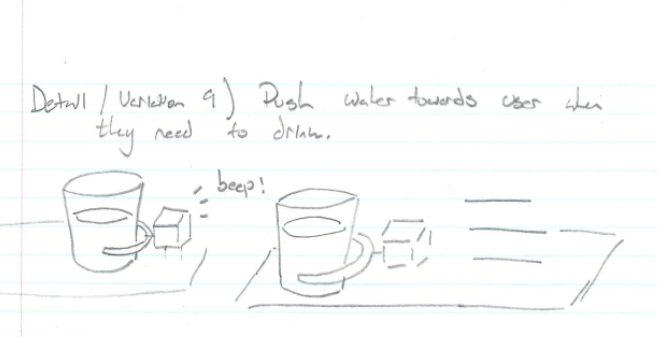 Detail / Variation 9) Push water towards user when
they need to drink.
beep!